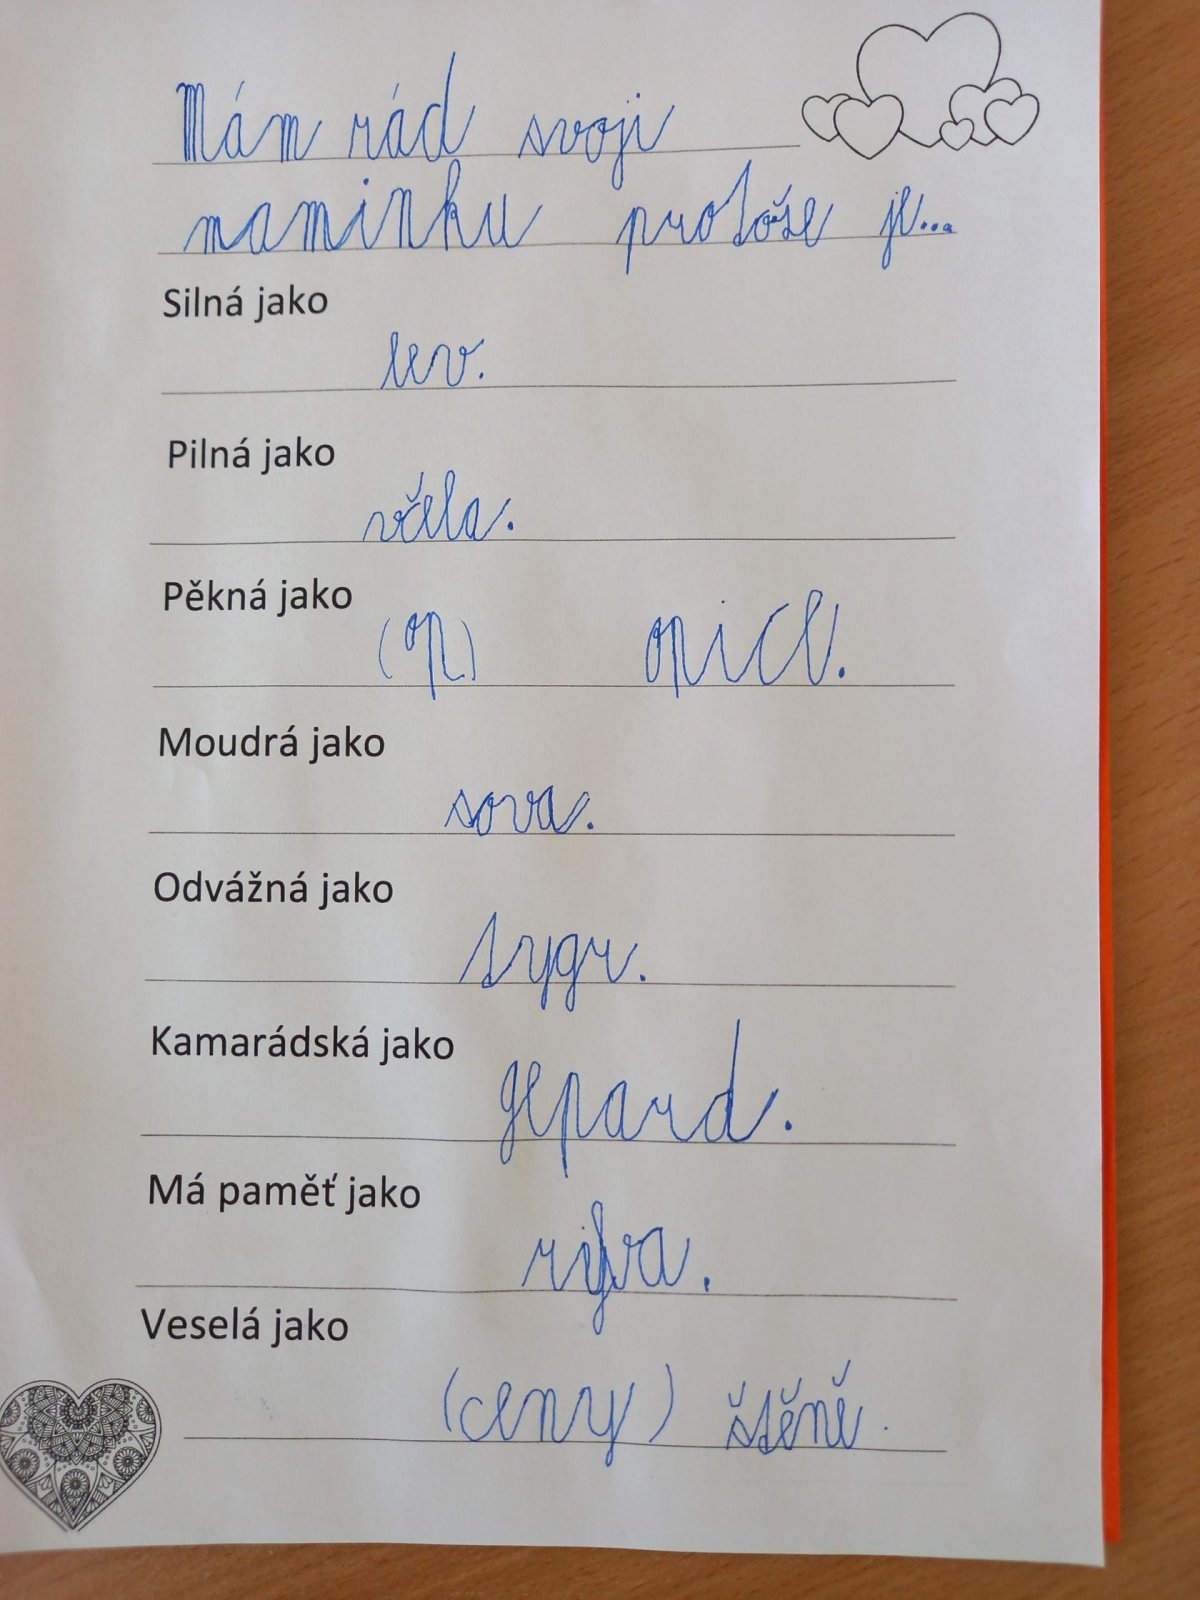 Mám rád svoji
maminku protože je...
Silná jako
lev.
Pilná jako
včela.
Pěkná jako
(op) opice.
Moudrá jako
sova.
Odvážná jako
tygr.
Kamarádská jako
gepard.
Má paměť jako
ryba.
Veselá jako
(ceny) štěně.